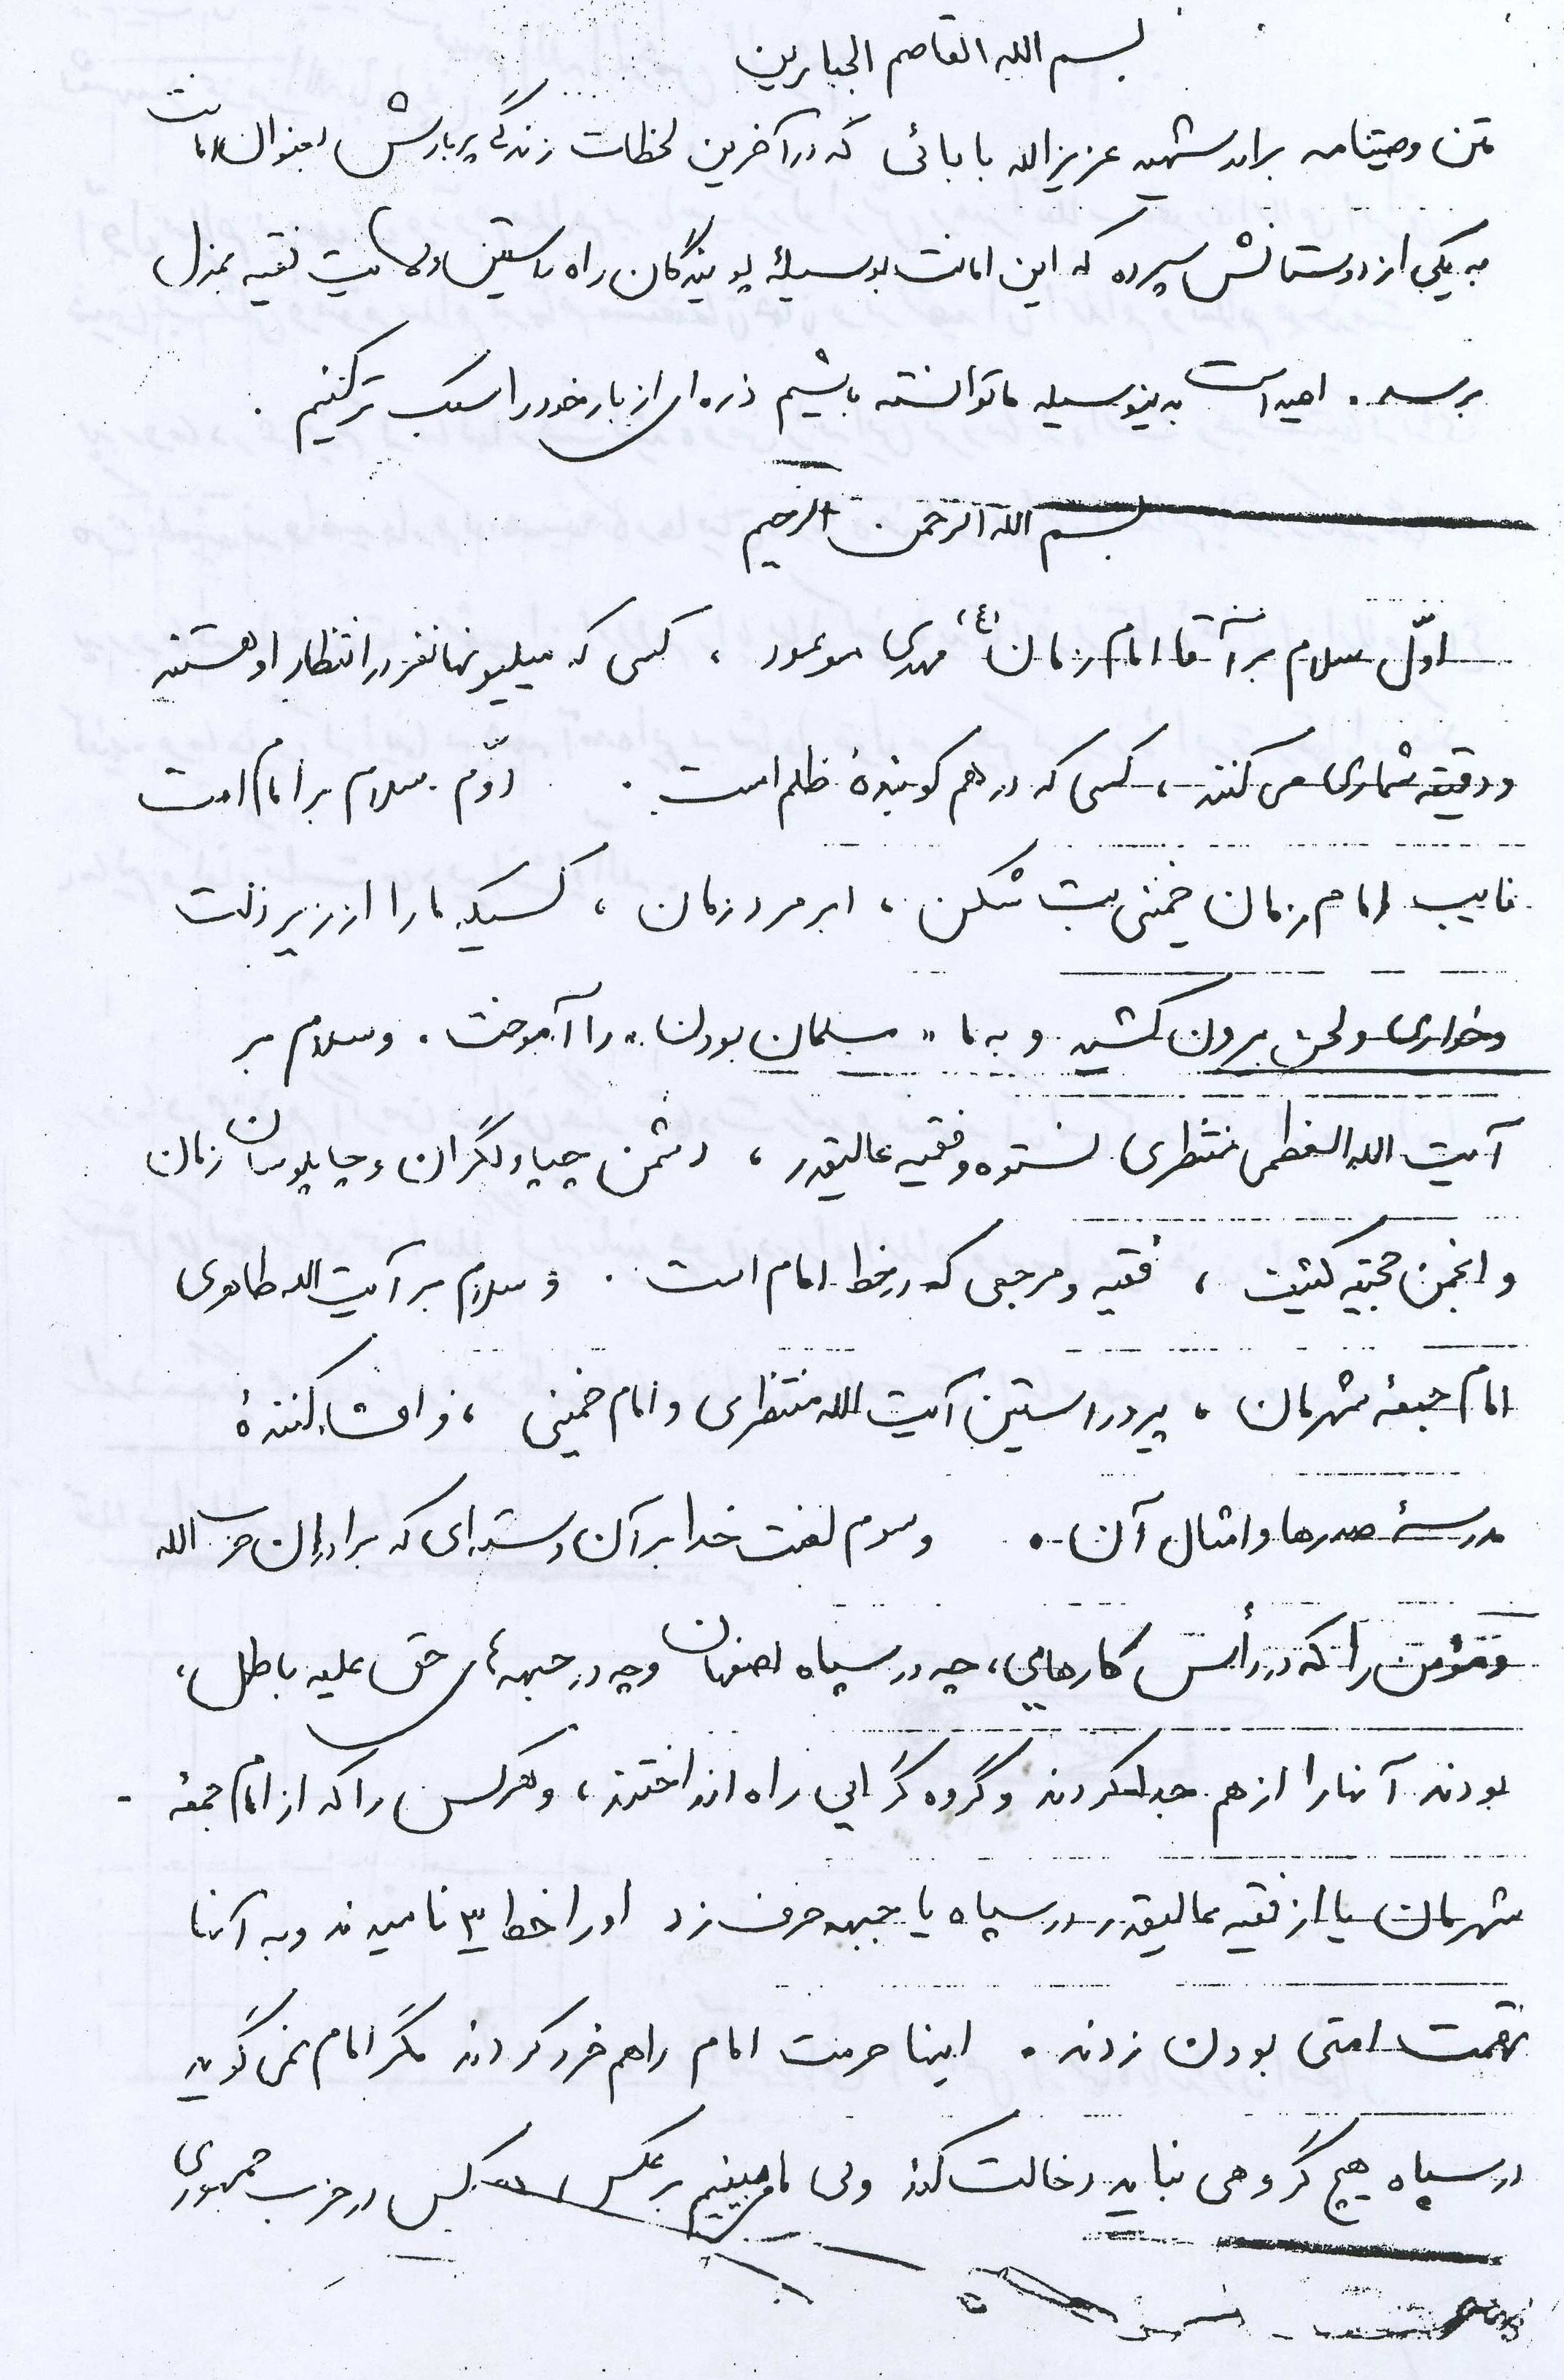 بسم الله القاصم الجبارین
متن وصیتنامه برادر شهید عزیزالله بابائی که در آخرین لحظات زندگی پربارش بعنوان امانت
به یکی از دوستانش سپرده که این امانت بوسیلهٔ پویندگان راه راستین ولایت فقیه بمنزل
برسد . امید است به ینوسیله ما توانسته باشیم ذره ای از بار خود را سبک تر کنیم .
بسم الله الرحمن الرحیم
اوّل سلام بر آقا امام زمان (ع) مهدی موعود ، کسی که میلیونها نفر در انتظار او هستند
و دقیقه شماری می کنند ، کسی که در هم کوبندهٔ ظلم است . دوّم سلام بر امام امت
نایب امام زمان خمینی بت شکن ، ابر مرد زمان ، کسیکه ما را از زیر ذلت
و خواری و لجن بیرون کشید و به ما « مسلمان بودن » را آموخت . و سلام بر
آیت الله العظمی منتظری نستوه و فقیه عالیقدر ، دشمن چپاولگران و چاپلوسان زمان
و انجمن حجتیه کثیف ، فقیه و مرجعی که در خط امام است . و سلام بر آیت الله طاهری
امام جمعهٔ شهرمان ، پیرو راستین آیت الله منتظری و امام خمینی ، و افشا کنندهٔ
مدرسهٔ صدرها و امثال آن . و سوم لعنت خدا بر آن دسته ای که برادران حزب الله
و مؤمن را که در رأس کارهایی ، چه در سپاه اصفهان و چه در جبهه های حق علیه باطل ،
بودند آنها را از هم جدا کردند و گروه گرایی راه انداختند ، و هرکس را که از امام جمعهٔ -
شهرمان یا از فقیه عالیقدر در سپاه یا جبهه حرف زد او را خط ۳ نامیدند و به آنها
تهمت امتی بودن زدند . اینها حرمت امام را هم خرد کردند مگر امام نمی گوید
در سپاه هیچ گروهی نباید دخالت کند ولی ما می بینیم برعکس کس در حزب جمهوری